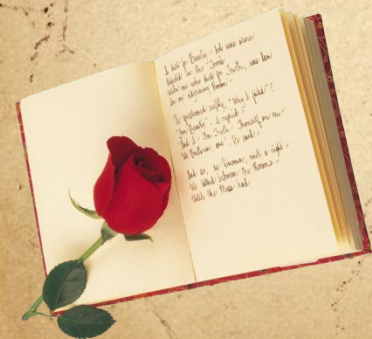 I died for Beauty - but was scarce
Adjusted in the Tomb
When One who died for Truth, was lain
In an adjoining Room -
He questioned softly "Why I failed"?
"For Beauty", I replied -
"And I - for Truth - Themself are one
We Brethren, are", He said -
And so, as Kinsmen, met a Night -
We talked between the Rooms -
Until the Moss had